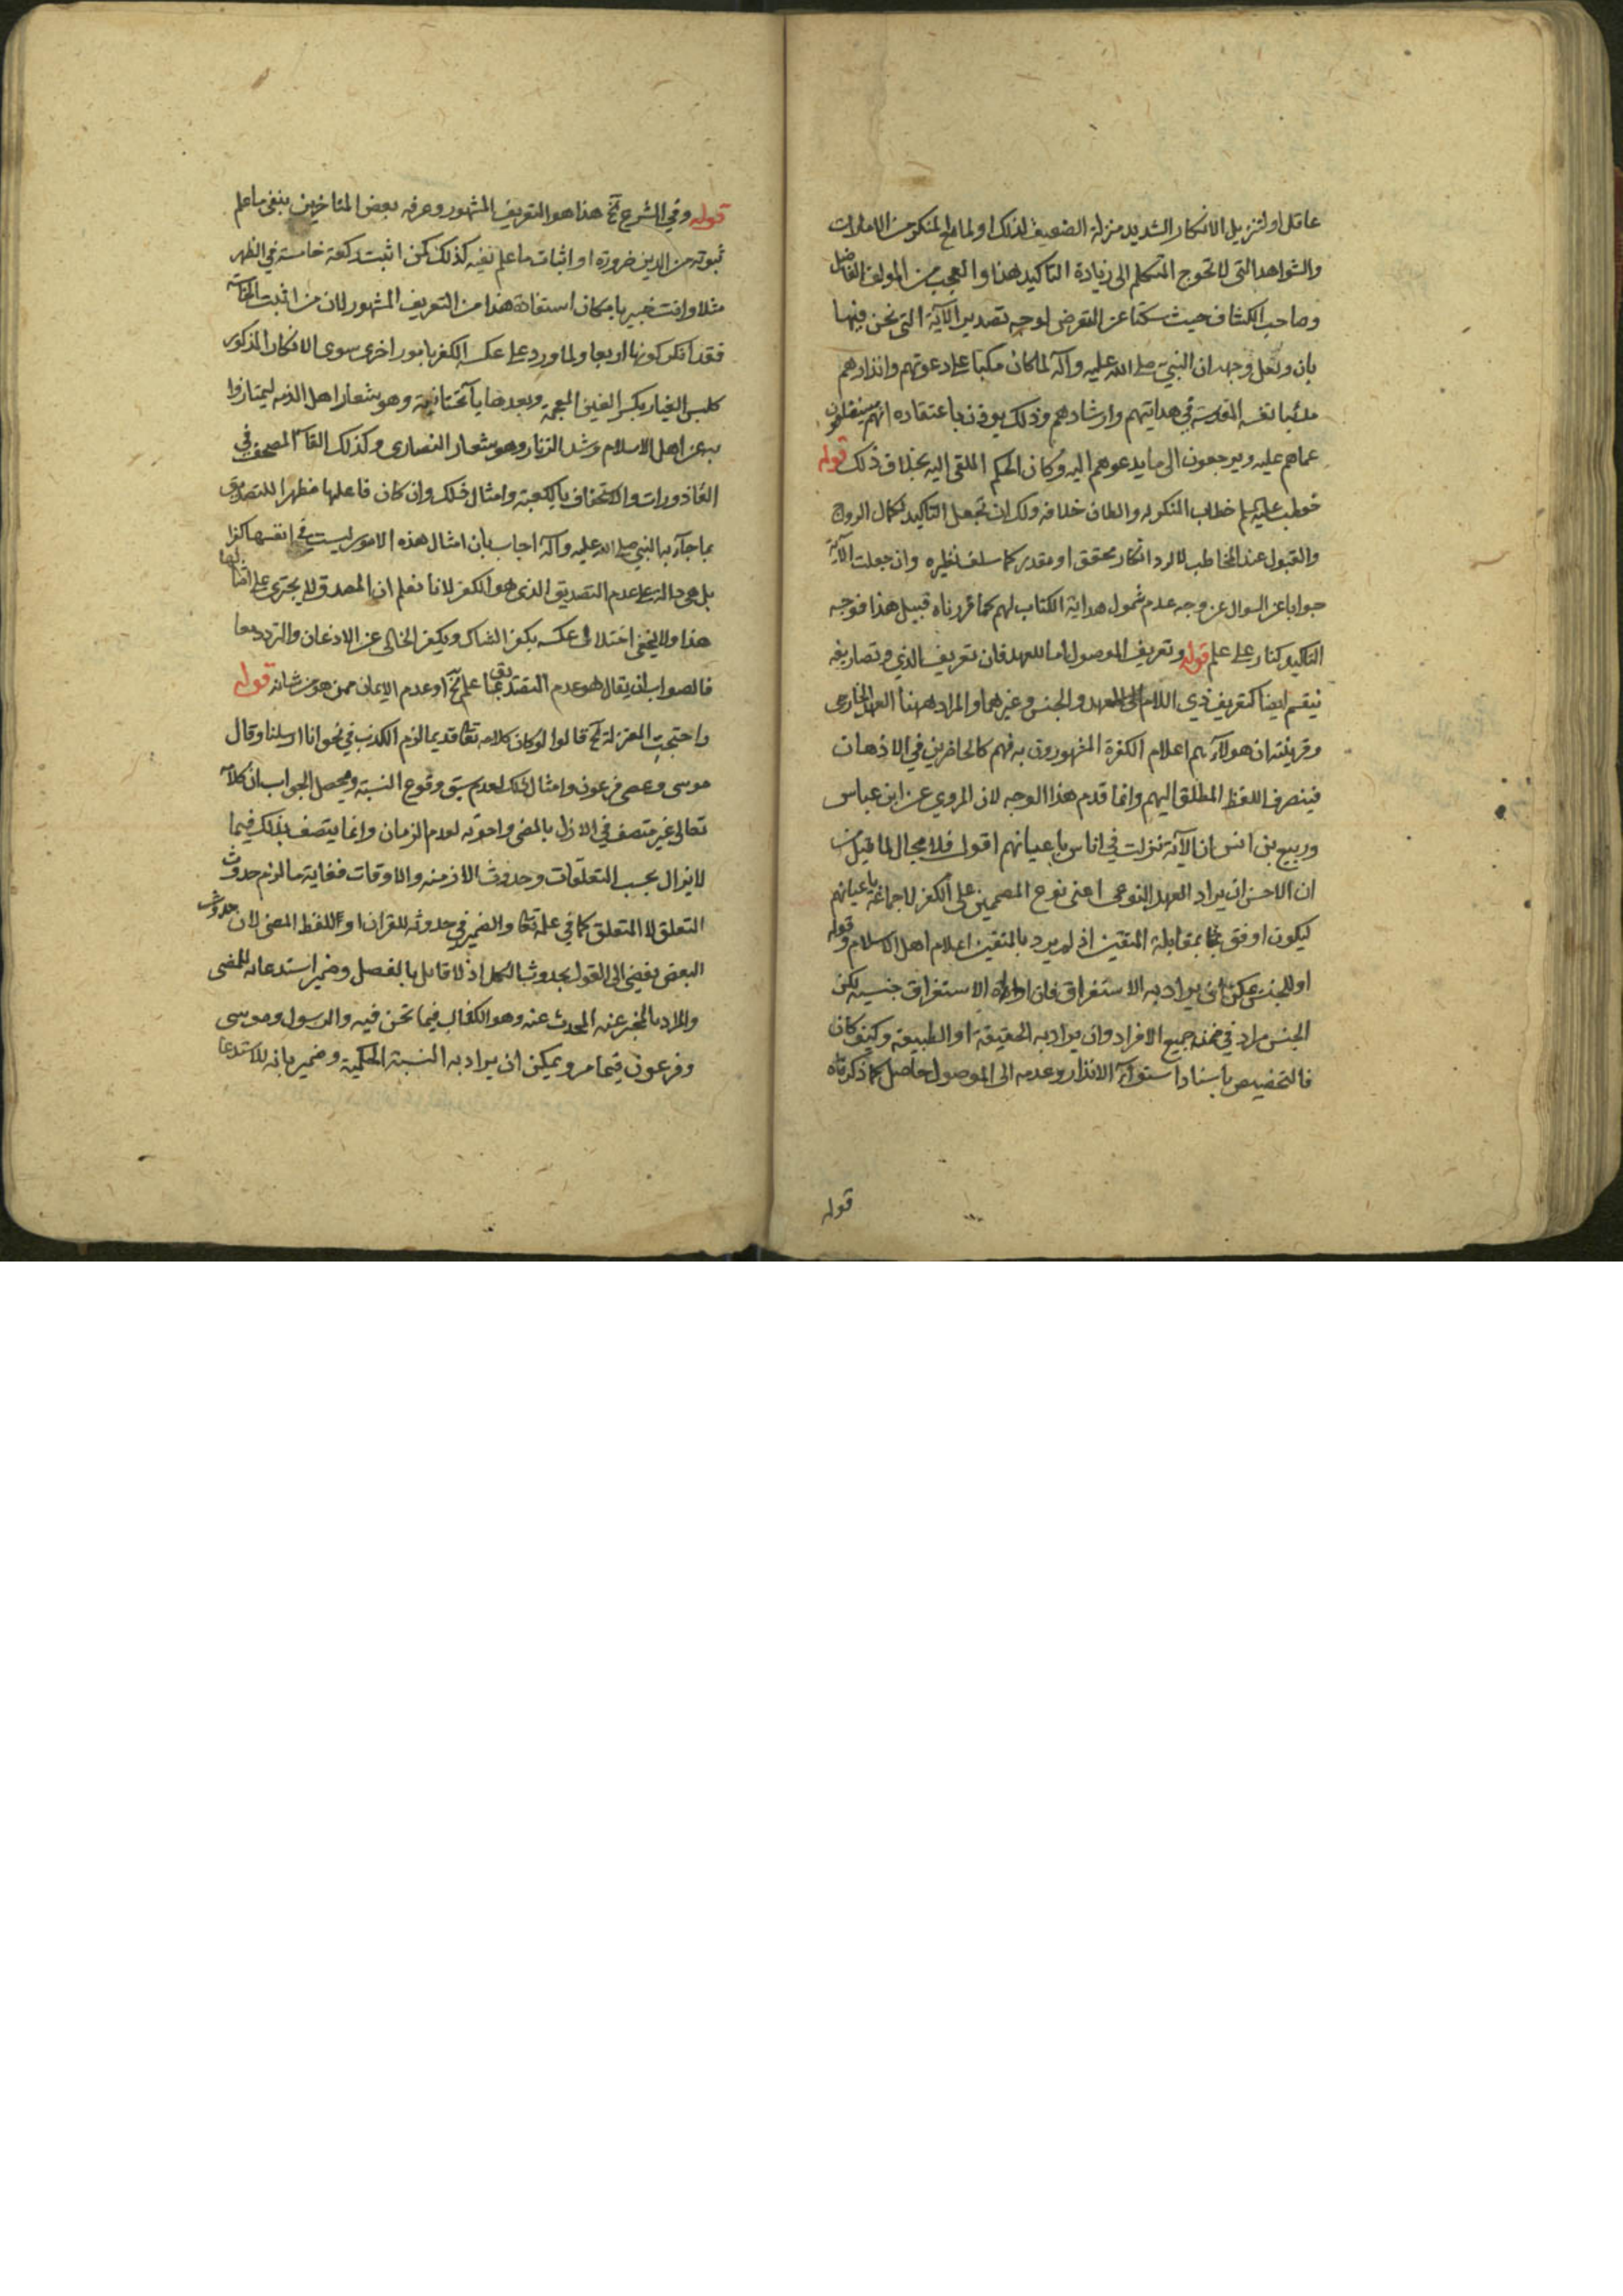 عاقل او لتنزيل الانكار الشديد منزلة الضعيف لذلك او لما مع المنكر من الامارات
والشواهد التي لا تحوج المتكلم الى زيادة التاكيد هذا والعجب من المولف الفاضل
وصاحب الكشاف حيث سكتا عن التعرض لوجه تصدير الآية التي نحن فيها
بان ولعل وجهه ان النبي صلى الله عليه وآله لما كان مكبا على دعوتهم وانذارهم
متعبا نفسه المقدسة في هدايتهم وارشادهم وذلك يوذن باعتقاده انهم سينتقلون
عماهم عليه ويرجعون الى ما يدعوهم اليه وكان الحكم الملقى اليه بخلاف ذلك قوله
خوطب عليه السلم خطاب المنكر به والظان خلافه ولك ان تجعل التاكيد لكمال الرواج
والقبول عند المخاطب لا لرد انكار محقق او مقدر كما سلف نظيره وان جعلت الآية
جوابا عن السوال عن وجه عدم شمول هداية الكتاب لهم كما قررناه قبيل هذا فوجه
التاكيد كنار على علم قوله وتعريف الموصول اما للعهد فان تعريف الذي وتصاريفه
ينقسم ايضا كتعريف ذي اللام الى العهد والجنس وغيرهما والمراد ههنا العهد الخارجى
وقرينته ان هولآء هم اعلام الكفرة المشهورون به فهم كالحاضرين في الاذهان
فينصرف اللفظ المطلق اليهم وانما قدم هذا الوجه لان المروي عن ابن عباس
وربيع بن انس ان الآية نزلت في اناس باعيانهم اقول فلا مجال لما قيل من
ان الاحسن ان يراد العهد النوعى اعنى نوع المصممين على الكفر لا جماعة باعيانهم
ليكون اوفق بمقابلة المتقين اذ لم يرد بالمتقين اعلام اهل الاسلام قوله
او للجنس يمكن ان يراد به الاستغراق فان اداة الاستغراق جنسية لكن
الجنس مراد في ضمنه جميع الافراد وان يراد به الحقيقة او الطبيعة وكيف كان
فالتخصيص باسناد استوآء الانذار وعدمه الى الموصول حاصل كما ذكرناه
قوله
قوله وفي الشرع الخ هذا هو التعريف المشهور وعرفه بعض المتاخرين بنفى ما علم
ثبوته من الدين ضرورة او اثبات ما علم نفيه كذلك كمن اثبت ركعة خامسة في الظهر
مثلا وانت خبير بامكان استفادة هذا من التعريف المشهور لان من اثبت الخامسة
فقد انكر كونها اربعا ولما ورد على عكسه الكفر بامور اخرى سوى الانكار المذكور
كلبس الغيار بكسر الغين المعجمة وبعدها يآء تحتانية وهو شعار اهل الذمه ليمتازوا
به عن اهل الاسلام وشد الزنار وهو شعار النصارى وكذلك القآء المصحف في
القاذورات والاستخفاف بالكعبة وامثال ذلك وان كان فاعلها مظهرا للتصديق
بما جآء به النبي صلى الله عليه وآله اجاب بان امثال هذه الامور ليست في انفسها كفرا
بل هى دالة على عدم التصديق الذى هو الكفر لانا نعلم ان المصدق لا يجترى على امثالها
هذا ولا يخفى اختلال عكسه بكفر الشاك وبكفر الخالى عن الاذعان والتردد معا
فالصواب ان يقال هو عدم التصديق بما علم الخ او عدم الايمان ممن هو من شانه قوله
واحتجت المعتزلة الخ قالوا لو كان كلامه تعالى قديما لزم الكذب في نحو انا ارسلنا وقال
موسى وعصى فرعون وامثال ذلك لعدم سبق وقوع النسبة ومحصل الجواب ان كلامه
تعالى غير متصف في الازل بالمضى واخويه لعدم الزمان وانما يتصف بذلك فيما
لا يزال بحسب التعلقات وحدوث الازمنه والاوقات فغاية ما لزم حدوث
التعلق لا المتعلق كما في علمه تعالى والضمير في حدوثه للقران او للفظ المضى لان حدوث
البعض يفضى الى القول بحدوث الكل اذ لا قائل بالفصل وضمير استدعائه للمضى
والمراد بالمخبر عنه المحدث عنه وهو الكفار فيما نحن فيه والرسول وموسى
وفرعون فيما مر ويمكن ان يراد به النسبة الحكمية وضمير بانه للاستدعا